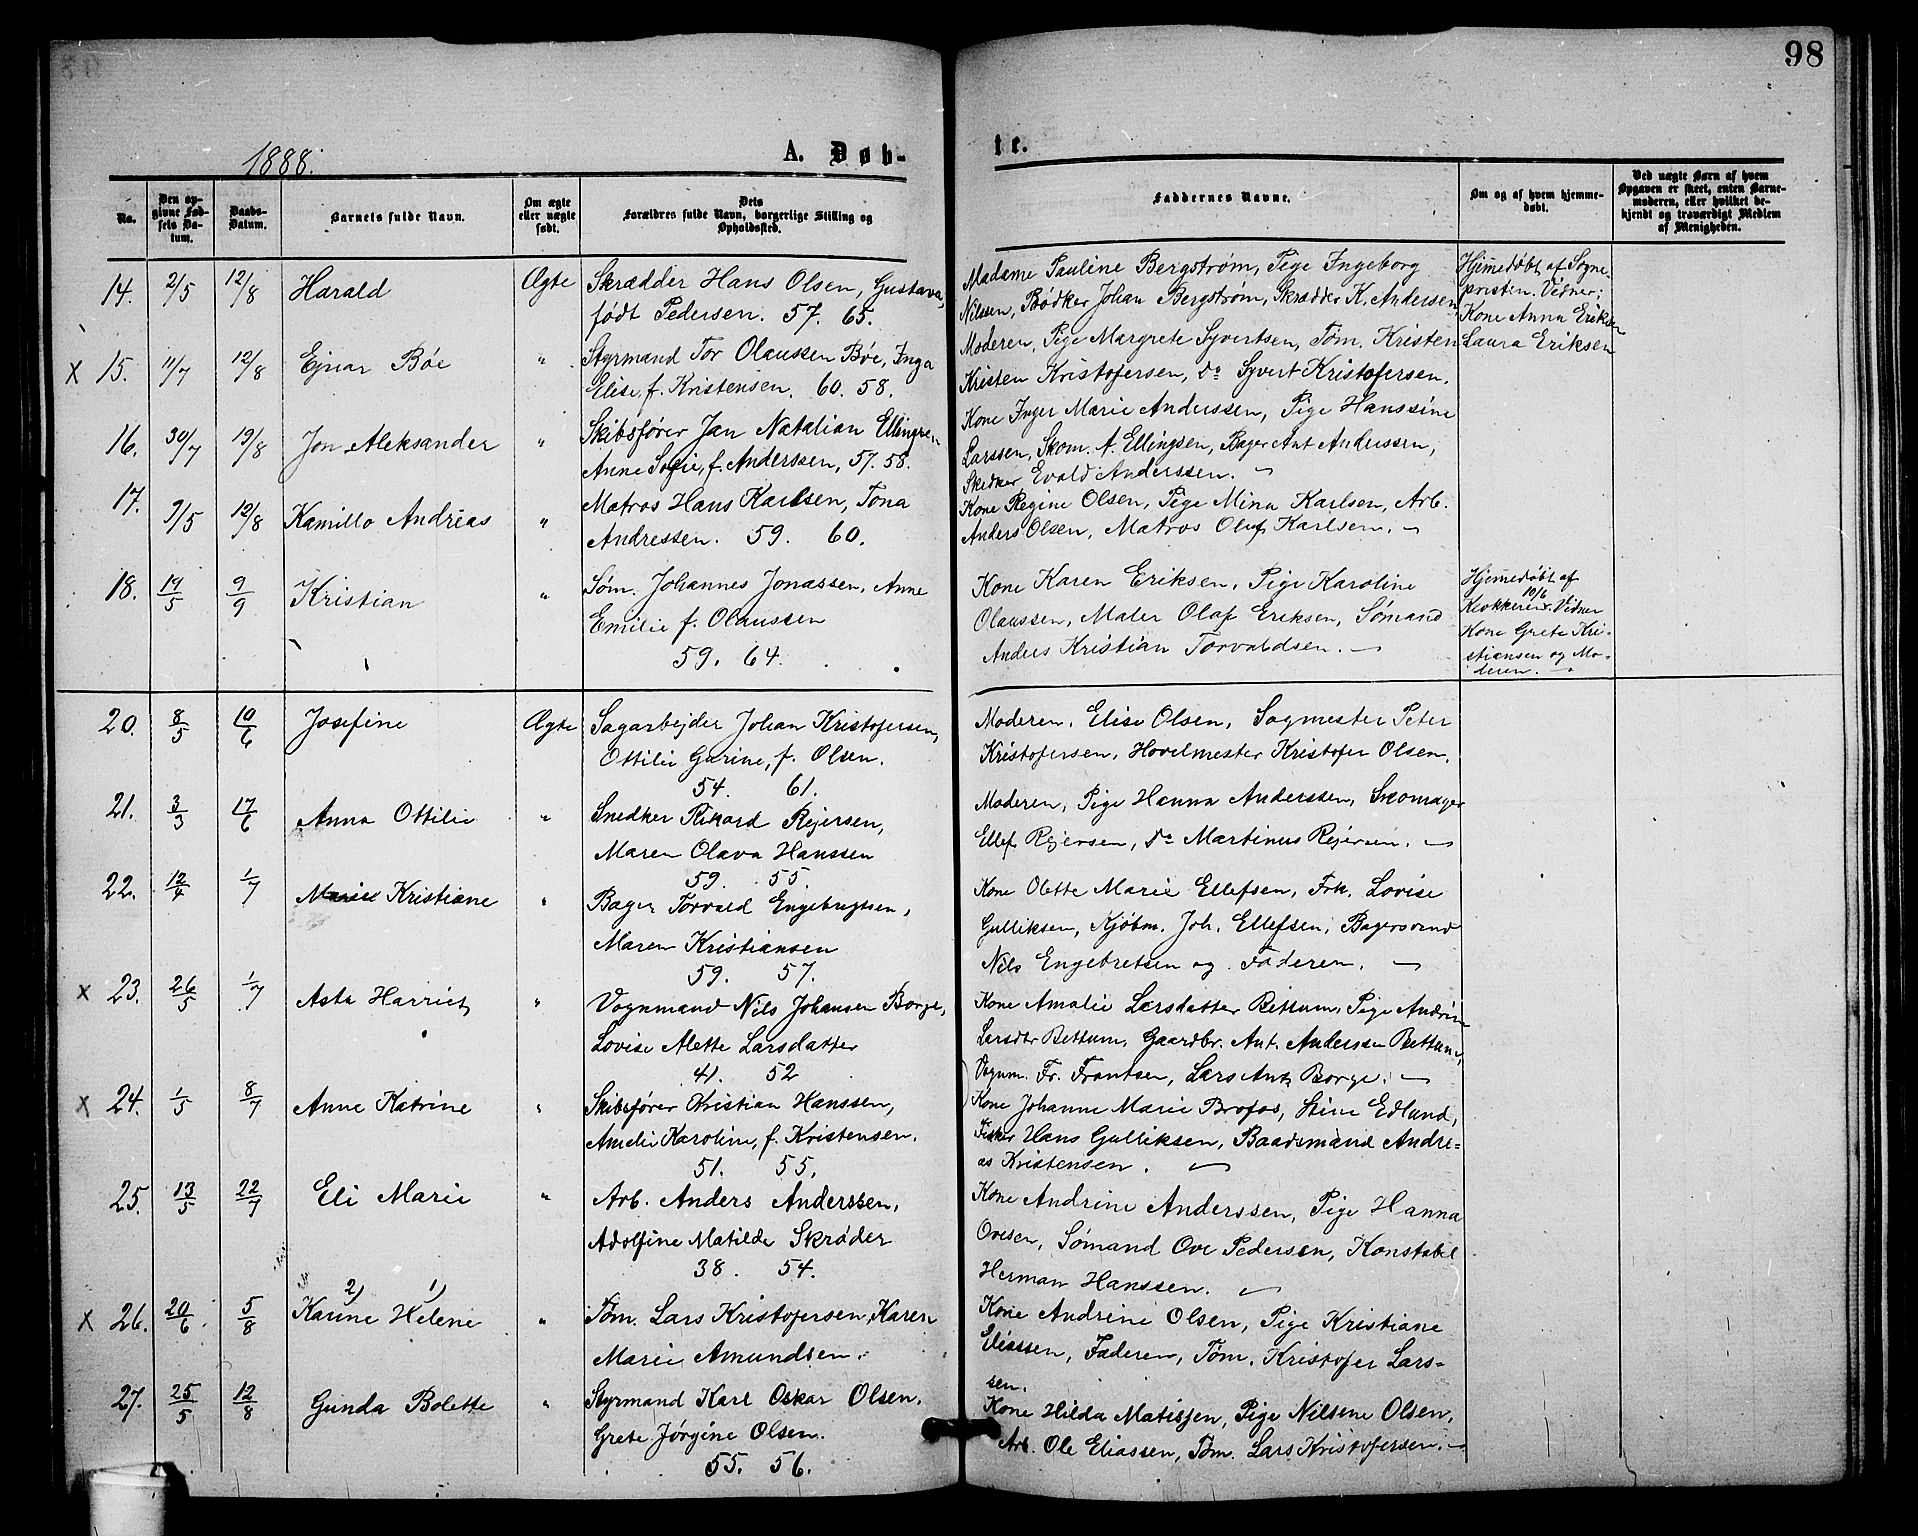 98
1888.
A. Døb-
te.
No.
Den op-
givne Fød-
sels Da-
tum.
Daabs-
Datum.
Barnets fulde Navn.
Om ægte
eller uægte
født.
Dets
Forældres fulde Navn, borgerlige Stilling og
Opholdssted.
Faddernes Navne.
Om og af hvem hjemme-
døbt.
Ved uægte Børn af hvem
Opgaven er skeet, enten Barne-
moderen, eller hvilket be-
kjendt og troværdigt Medlem
af Menigheden.
14. 2/5 12/8 Harald Ægte Skrædder Hans Olsen, Gustava,
født Pedersen. 57. 65.
Madame Pauline Bergstrøm, Pige Ingeborg
Nilssen, Bødker Johan Bergstrøm, Skrædder K. Andersen
Hjemmedøbt af Sogne-
presten. Vidner:
Kone Anna Eriksen
Laura Eriksen
X 15. 11/7 12/8 Ejnar Bøe " Styrmand Tor Olaussen Bøe, Inga
Elise, f. Kristensen. 60. 58.
Moderen, Pige Margrete Syvertsen, Tøm. Kristen
Kristen Kristofersen, do Syvert Kristofersen.
16. 30/7 19/8 Jon Aleksander " Skibsfører Jan Natalian Ellingsen
Anne Sofie, f. Anderssen, 57. 58.
Kone Inger Marie Anderssen, Pige Hanssine
Larssen, Skom. A. Ellingsen, Bager Ant Anderssen,
Evald Anderssen.
17. 9/5 12/8 Kamillo Andreas " Matros Hans Karlsen, Tona
Andressen. 59. 60.
Kone Regine Olsen, Pige Mina Karlsen, Arb.
Anders Olsen, Matros Oluf Karlsen.
18. 19/5 9/9 Kristian " Søm. Johannes Jonassen, Anne
Emilie f. Olaussen
59. 64.
Kone Karen Eriksen, Pige Karoline
Olaussen, Maler Olaf Eriksen, Sømand
Anders Kristian Torvaldsen.
Hjemmedøbt af
10/6
Klokkeren. Vidner
Kone Grete Kri-
stiansen og Mo-
deren.
20. 8/5 10/6 Josefine Ægte Sagarbejder Johan Kristofersen,
Ottilie Gurine, f. Olsen.
54. 61.
Moderen, Elise Olsen, Sagmester Peter
Kristofersen, Høvelmester Kristofer Olsen.
21. 3/3 17/6 Anna Ottilie " Snedker Rikard Rejersen,
Maren Olava Hanssen
59. 55.
Moderen, Pige Hanna Anderssen, Skomager
Ellef Rejersen, do Martinus Rejersen.
22. 12/4 1/7 Marie Kristiane " Bager Torvald Engebrigtsen,
Maren Kristiansen
59. 57.
Kone Olette Marie Ellefsen, Frk. Lovise
Gulliksen, Kjøbm. Joh. Ellefsen, Bagersvend
Nils Engebretsen og Faderen.
X 23. 26/5 1/7 Asta Harriet " Vognmand Nils Johansen Borge,
Lovise Alette Larsdatter
41. 52
Kone Amalie Larsdatter Bettum, Pige Andrine
Larsdtr Bettum, Gaardbr. Ant. Anderssen Bettum,
Vognm. Fr. Frantsen, Lars Ant. Borge.
X 24. 1/5 8/7 Anne Katrine " Skibsfører Kristian Hanssen,
Amelie Karoline, f. Kristensen.
51. 55.
Kone Johanne Marie Brofos, Stine Edlund,
Fisker Hans Gulliksen, Baadsmand Andre-
as Kristensen.
25. 13/5 22/7 Eli Marie " Arb. Anders Anderssen,
Adolfine Matilde Skrøder
38. 54.
Kone Andrine Anderssen, Pige Hanna
Ovesen, Sømand Ove Pedersen, Konstabel
Herman Hanssen.
2) 1)
X 26. 20/6 5/8 Karine Helene " Tøm. Lars Kristofersen, Karen
Marie Amundsen.
Kone Andrine Olsen, Pige Kristiane
Eliassen, Faderen, Tøm. Kristofer Lars-
sen.
27. 25/5 12/8 Gunda Bolette " Styrmand Karl Oskar Olsen,
Grete Jørgine Olsen.
55. 56.
Kone Hilda Matissen, Pige Nilsene Olsen,
Arb. Ole Eliassen, Tøm. Lars Kristofersen.